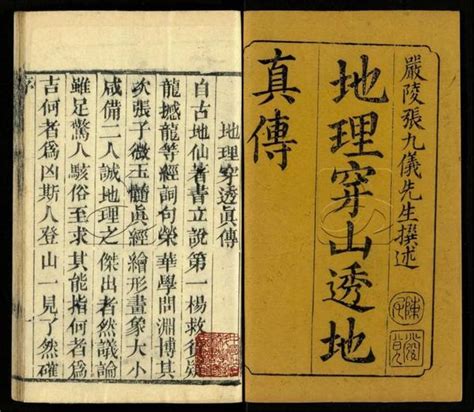 嚴陵張九儀先生撰述
地理穿山透地
真傳
地理穿透真傳
自古地仙著書立說第一楊救貧疑
龍撼龍等經詞句榮華學問淵博其
次張子微玉髓眞經繪形畫象大小
咸備二人誠地理之傑出者然議論
雖足驚人駭俗至求其能指何者爲
吉何者爲凶斯人登山一見了然確
序
一